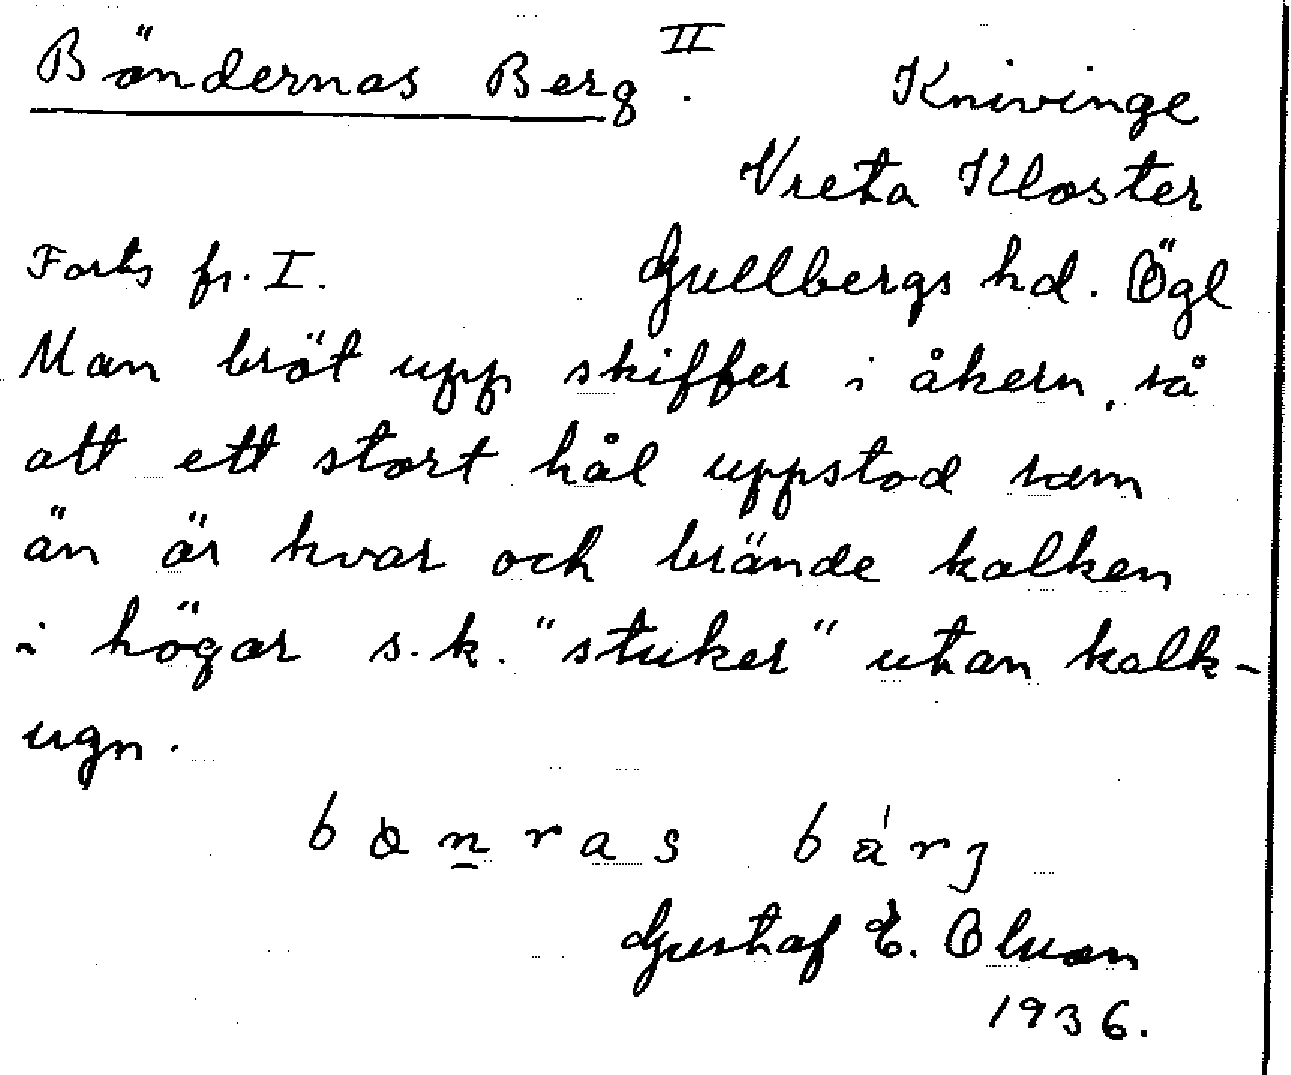 Böndernas Berg II.
Knivinge
Vreta Kloster
Forts fr. I.
Gullbergs hd. Ögl
Man bröt upp skiffer i åkern, så
att ett stort hål uppstod som
än är kvar och brände kalken
i högar s.k. "stuker" utan kalk-
ugn.
Gustaf E. Olson
1936.